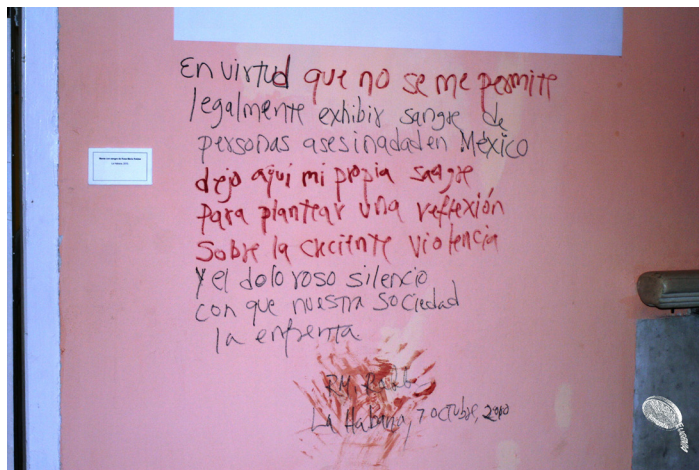 En virtud que no se me permite
legalmente exhibir sangre de
personas asesinadad en México
dejo aquí mi propia sangre
para plantear una reflexión
sobre la creciente violencia
y el doloroso silencio
con que nuestra sociedad
la enfrenta.
RM. 
La Habana, 7 octubre, 2010